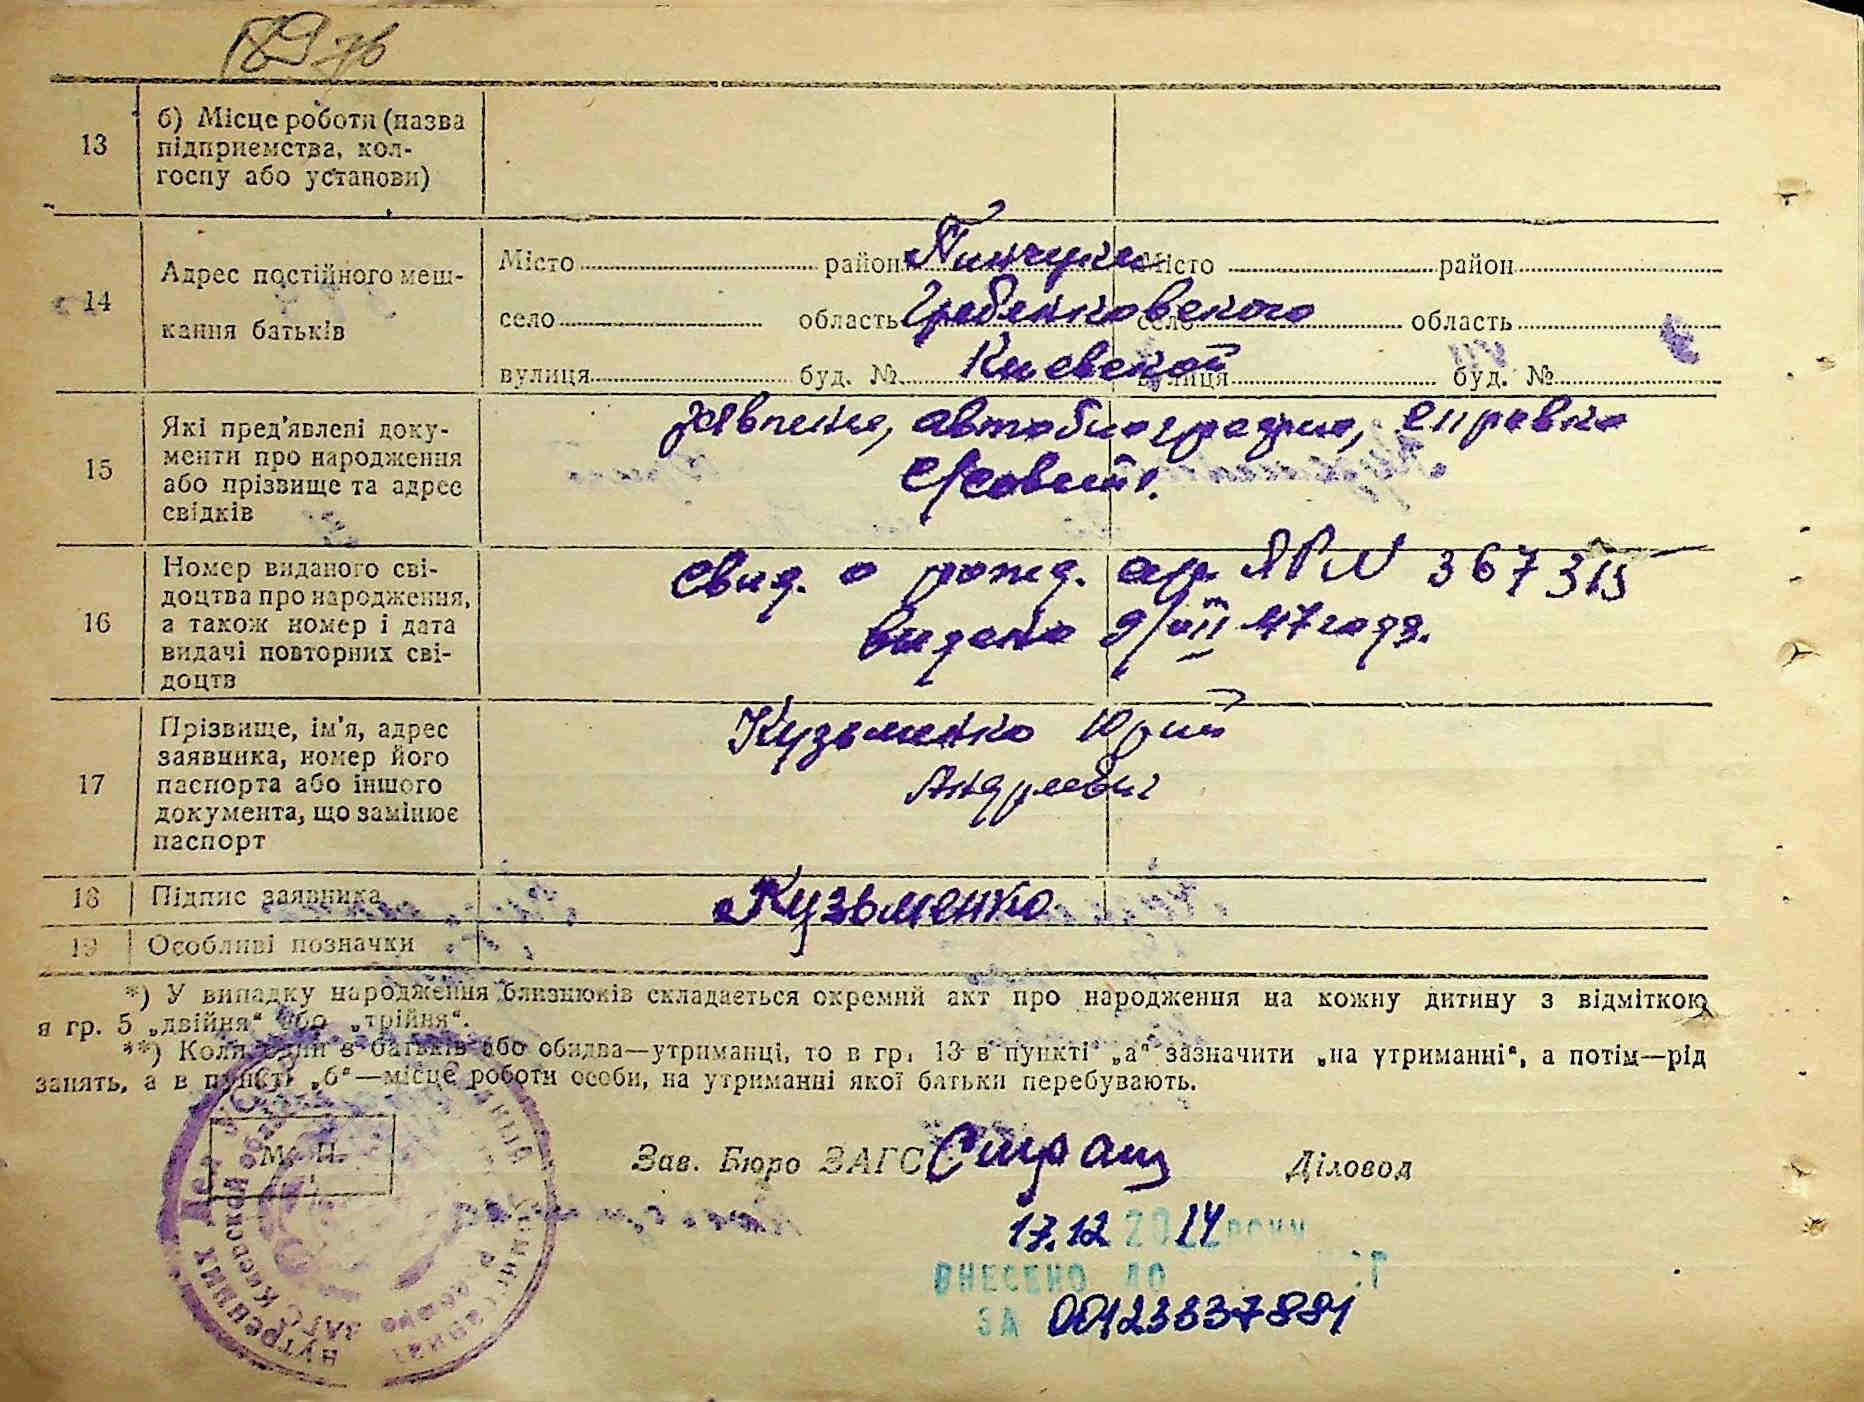 189
13
б) Місце роботи (назва
підприємства, кол-
госпу або установи)
14
Адрес постійного меш-
кання батьків
Місто район Пинчуки Місто район
село область Гребенковского село область
вулиця буд. № Киевской вулиця буд. №
15
Які пред'явлені доку-
менти про народження
або прізвище та адрес
свідків
автобиография, справка
16
Номер виданого сві-
доцтва про народження,
а також номер і дата
видачі повторних сві-
доцтв
Свид. о рожд. ЯР N 367315
видано 9/VII 47 года.
17
Прізвище, ім'я, адрес
заявника, номер його
паспорта або іншого
документа, що замінює
паспорт
Кузьменко Юрий
Андреевич
18 Підпис заявника Кузьменко
19 Особливі позначки
*) У випадку народження близнюків складається окремий акт про народження на кожну дитину з відміткою
я гр. 5 „двійня" або „трійня".
**) Коли один з батьків або обидва—утриманці, то в гр. 13 в пункті „а" зазначити „на утриманні", а потім—рід
занять, а в пункті „б"—місце роботи особи, на утриманні якої батьки перебувають.
М. П.
Зав. Бюро ЗАГС Діловод
17.12 2014 року
ВНЕСЕНО ДО
ЗА 00123337881